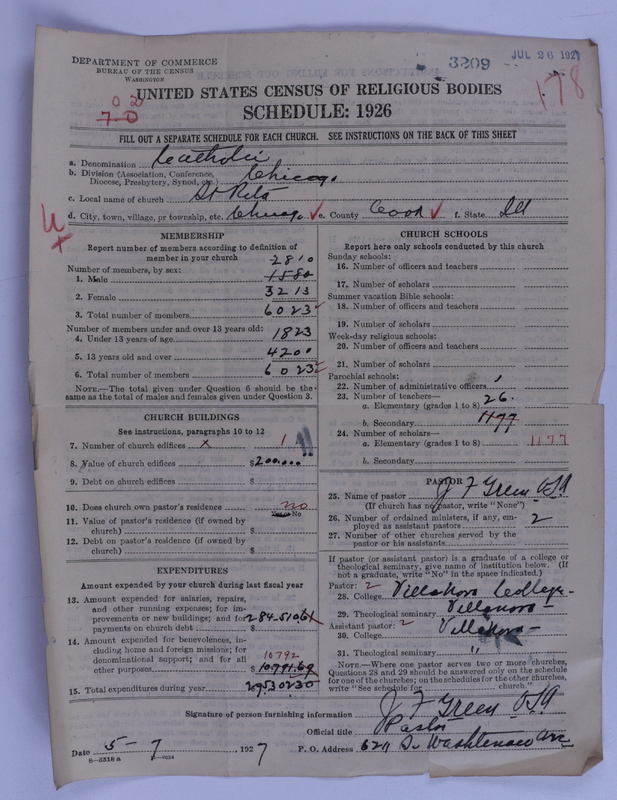 DEPARTMENT OF COMMERCE
BUREAU OF THE CENSUS
WASHINGTON
3209
JUL 26 1927
178
UNITED STATES CENSUS OF RELIGIOUS BODIES
0 2
7-0
SCHEDULE: 1926
FILL OUT A SEPARATE SCHEDULE FOR EACH CHURCH. SEE INSTRUCTIONS ON THE BACK OF THIS SHEET
a. Denomination Catholic
b. Division (Association, Conference, Diocese, Presbytery, Synod, etc.) Chicago
c. Local name of church St Rita
d. City, town, village, or township, etc. Chicago ✓ e. County Cook ✓ f. State Ill
MEMBERSHIP
Report number of members according to definition of
member in your church
2810
Number of members, by sex:
1. Male 1580
2. Female 3213
3. Total number of members 6023
Number of members under and over 13 years old:
4. Under 13 years of age 1823
5. 13 years old and over 4200
6. Total number of members 6023
NOTE.—The total given under Question 6 should be the
same as the total of males and females given under Question 3.
CHURCH BUILDINGS
See instructions, paragraphs 10 to 12
7. Number of church edifices x 1
8. Value of church edifices $200.000
9. Debt on church edifices $
10. Does church own pastor's residence no
Yes or No
11. Value of pastor's residence (if owned by
church) $
12. Debt on pastor's residence (if owned by
church) $
EXPENDITURES
Amount expended by your church during last fiscal year
13. Amount expended for salaries, repairs,
and other running expenses; for im-
provements or new buildings; and for
payments on church debt $284.510.61
14. Amount expended for benevolences, in-
cluding home and foreign missions; for
denominational support; and for all 10792
other purposes $10.791.69
15. Total expenditures during year 29530230
CHURCH SCHOOLS
Report here only schools conducted by this church
Sunday schools:
16. Number of officers and teachers
17. Number of scholars
Summer vacation Bible schools:
18. Number of officers and teachers
19. Number of scholars
Week-day religious schools:
20. Number of officers and teachers
21. Number of scholars
Parochial schools:
22. Number of administrative officers 1
23. Number of teachers—
a. Elementary (grades 1 to 8) 26
b. Secondary 1177
24. Number of scholars—
a. Elementary (grades 1 to 8) 1177
b. Secondary
PASTOR
25. Name of pastor J F Green OSA
(If church has no pastor, write "None")
26. Number of ordained ministers, if any, em-
ployed as assistant pastors 2
27. Number of other churches served by the
pastor or his assistants
If pastor (or assistant pastor) is a graduate of a college or
theological seminary, give name of institution below. (If
not a graduate, write "No" in the space indicated.)
Pastor: 2
28. College Villanova College
29. Theological seminary Villanova
Assistant pastor: 2
30. College Villanova
31. Theological seminary "
NOTE.—Where one pastor serves two or more churches,
Questions 28 and 29 should be answered only on the schedule
for one of the churches; on the schedules for the other churches,
write "See schedule for church."
Signature of person furnishing information J F Green OSA
Official title Pastor
Date 5-7, 1927 P. O. Address 6211 So Washtenaw Ave
8-5318 a